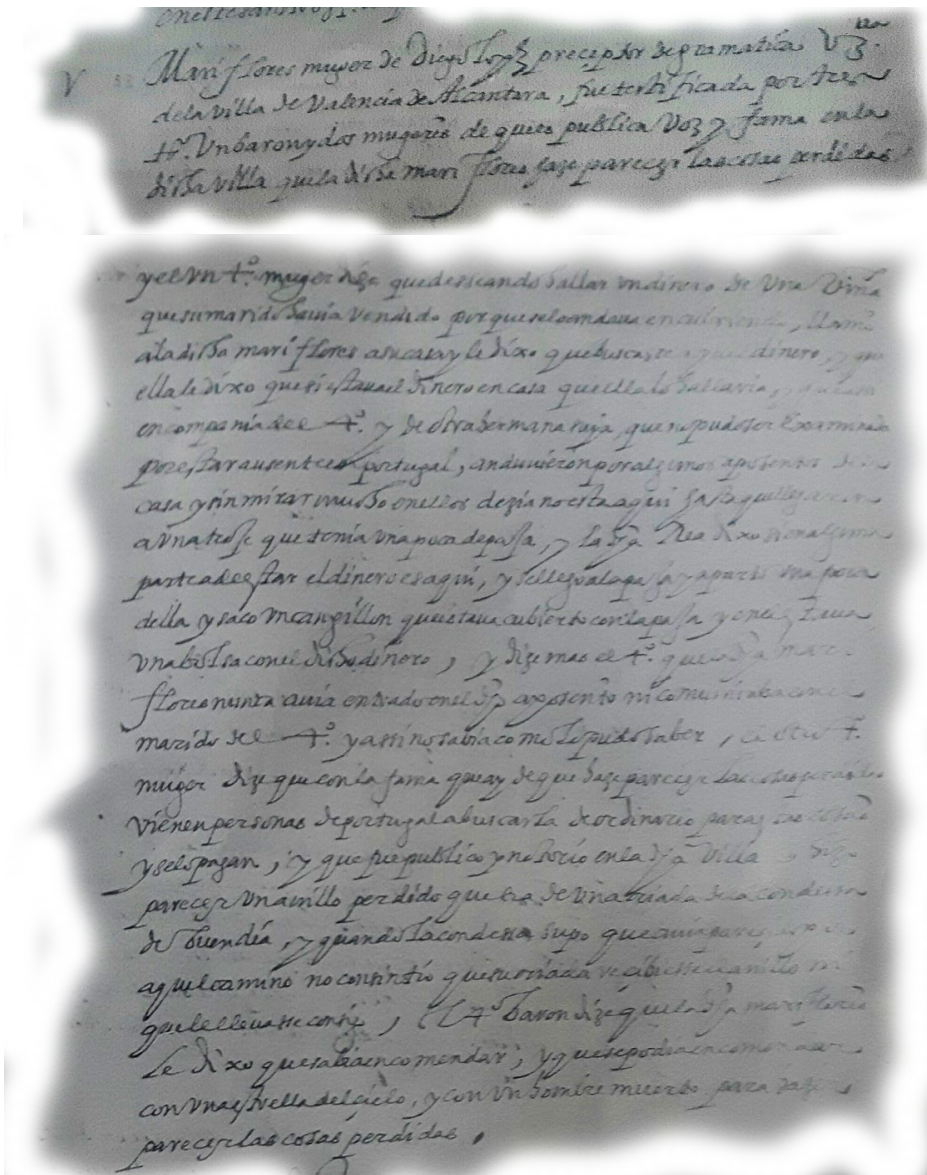 Mari flores muger de Diego Lopez preceptor de gramatica Vzª.
V de la villa de Valencia de Alcantara, fue testificada por tres
tº. Un baron y dos mugeres de que es publica voz y fama en la
dicha villa que la dicha mari flores haze parecer las cosas perdidas
y el un tº. muger dize que deseando hallar un dinero de una viña
que su marido havia vendido porque se lo andava encubriendo, llamo
a la dicha mari flores a su casa y le dixo que buscasse aquel dinero, y que
ella le dixo que si estava el dinero en casa que ella lo hallaria, y que
en compañia del tº. y de otra hermana suya, que no pudo ser examinada
por estar ausente en portugal, anduvieron por algunos aposentos de la
casa y sin mirar mucho en ellos dezia no esta aqui hasta que llegaron
a una troje que tenia una poca de paja, y la dha Rea dixo si en alguna
parte a de estar el dinero es aqui, y se llego a la paja y aparto una poca
della y saco un cangillon que estava cubierto con la paja y en el estava
una bolsa con el dicho dinero, y dize mas el tº. que la dha mari
flores nunca avia entrado en el dho aposento ni comunicaba con el
marido del tº. y assi no sabia como lo pudo saber, el otro tº.
muger dize que con la fama que ay de que haze parecer las cosas perdidas
vienen personas de portugal a buscarla de ordinario para
y se lo pagan, y que fue publico y notorio en la dha villa, hizo
parecer un anillo perdido que era de una criada de la condessa
de buendia, y quando la condesa supo que avia parecido
aquel camino no consintio que su criada recibiesse el anillo ni
que le llevasse consigo, El tº baron dize que la dha mari flores
Le dixo que sabia encomendar, y que se podia encomendar
con una estrella del cielo, y con un hombre muerto para hazer
parecer las cosas perdidas.